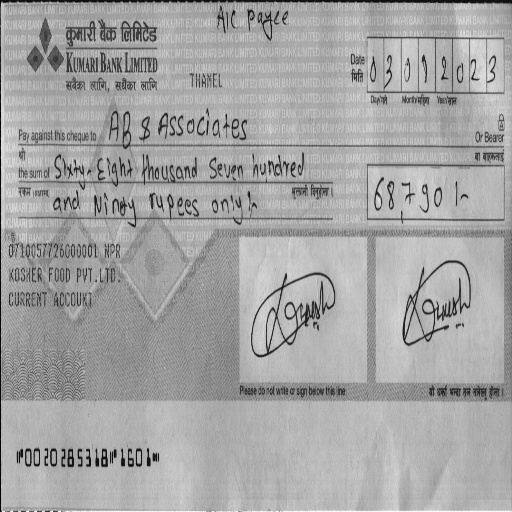 A/C Payee
कुमारी बैंक लिमिटेड
KUMARI BANK LIMITED
सबैका लागि, सधैंका लागि
THAMEL
Date
मिति
03 09 2023
Day/गते Month/महिना Year/साल
Pay against this cheque to AB & Associates
Or Bearer
श्री
वा वाहकलाई
the sum of Sixty-Eight thousand Seven hundred
रकम
and Ninety rupees only/-
68,790/-
0710057726000001 NPR
KOSHER FOOD PVT.LTD.
CURRENT ACCOUNT
Please do not write or sign below this line
⑈00202853181⑈1601⑈